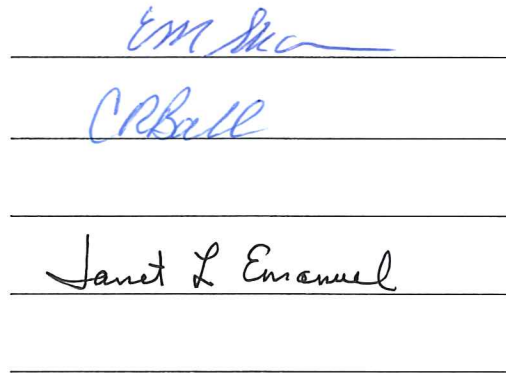 EM
CRBall
Janet L Emanuel